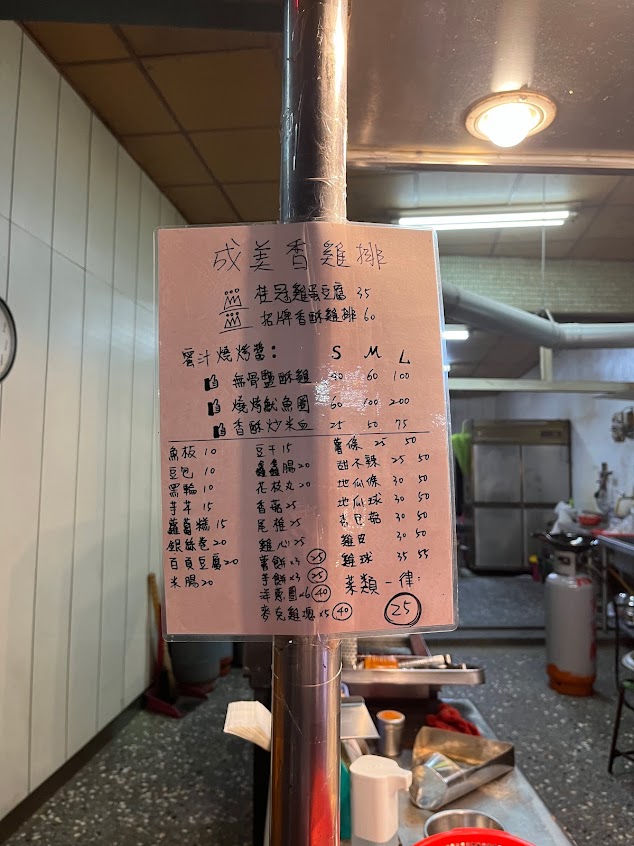 成美香雞排
桂冠雞蛋豆腐 35
招牌香酥雞排 60
蜜汁燒烤醬: S M L
無骨鹽酥雞 40 60 100
燒烤魷魚圈 60 100 200
香酥炒米血 25 50 75
魚板 10
豆包 10
黑輪 10
芋粿 15
蘿蔔糕 15
銀絲卷 20
百頁豆腐 20
米腸 20
豆干 15
鑫鑫腸 20
花枝丸 20
香菇 25
尾椎 25
雞心 25
薯餅x3 25
芋餅x3 25
洋蔥圈x6 40
麥克雞塊x5 40
薯條 25 50
甜不辣 25 50
地瓜條 30 50
地瓜球 30 50
杏包菇 30 50
雞皮 30 50
雞球 35 55
菜類一律:
25